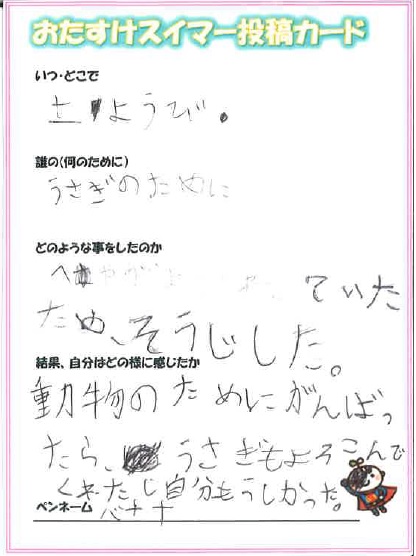 おたすけスイマー投稿カード
いつ・どこで
土ようび。
誰の(何のために)
うさぎのために
どのような事をしたのか
ていた
ため、そうじした。
結果、自分はどの様に感じたか
動物のためにがんばっ
たら、うさぎもよろこんで
くれたし自分もうしかった。
ペンネーム バナナ